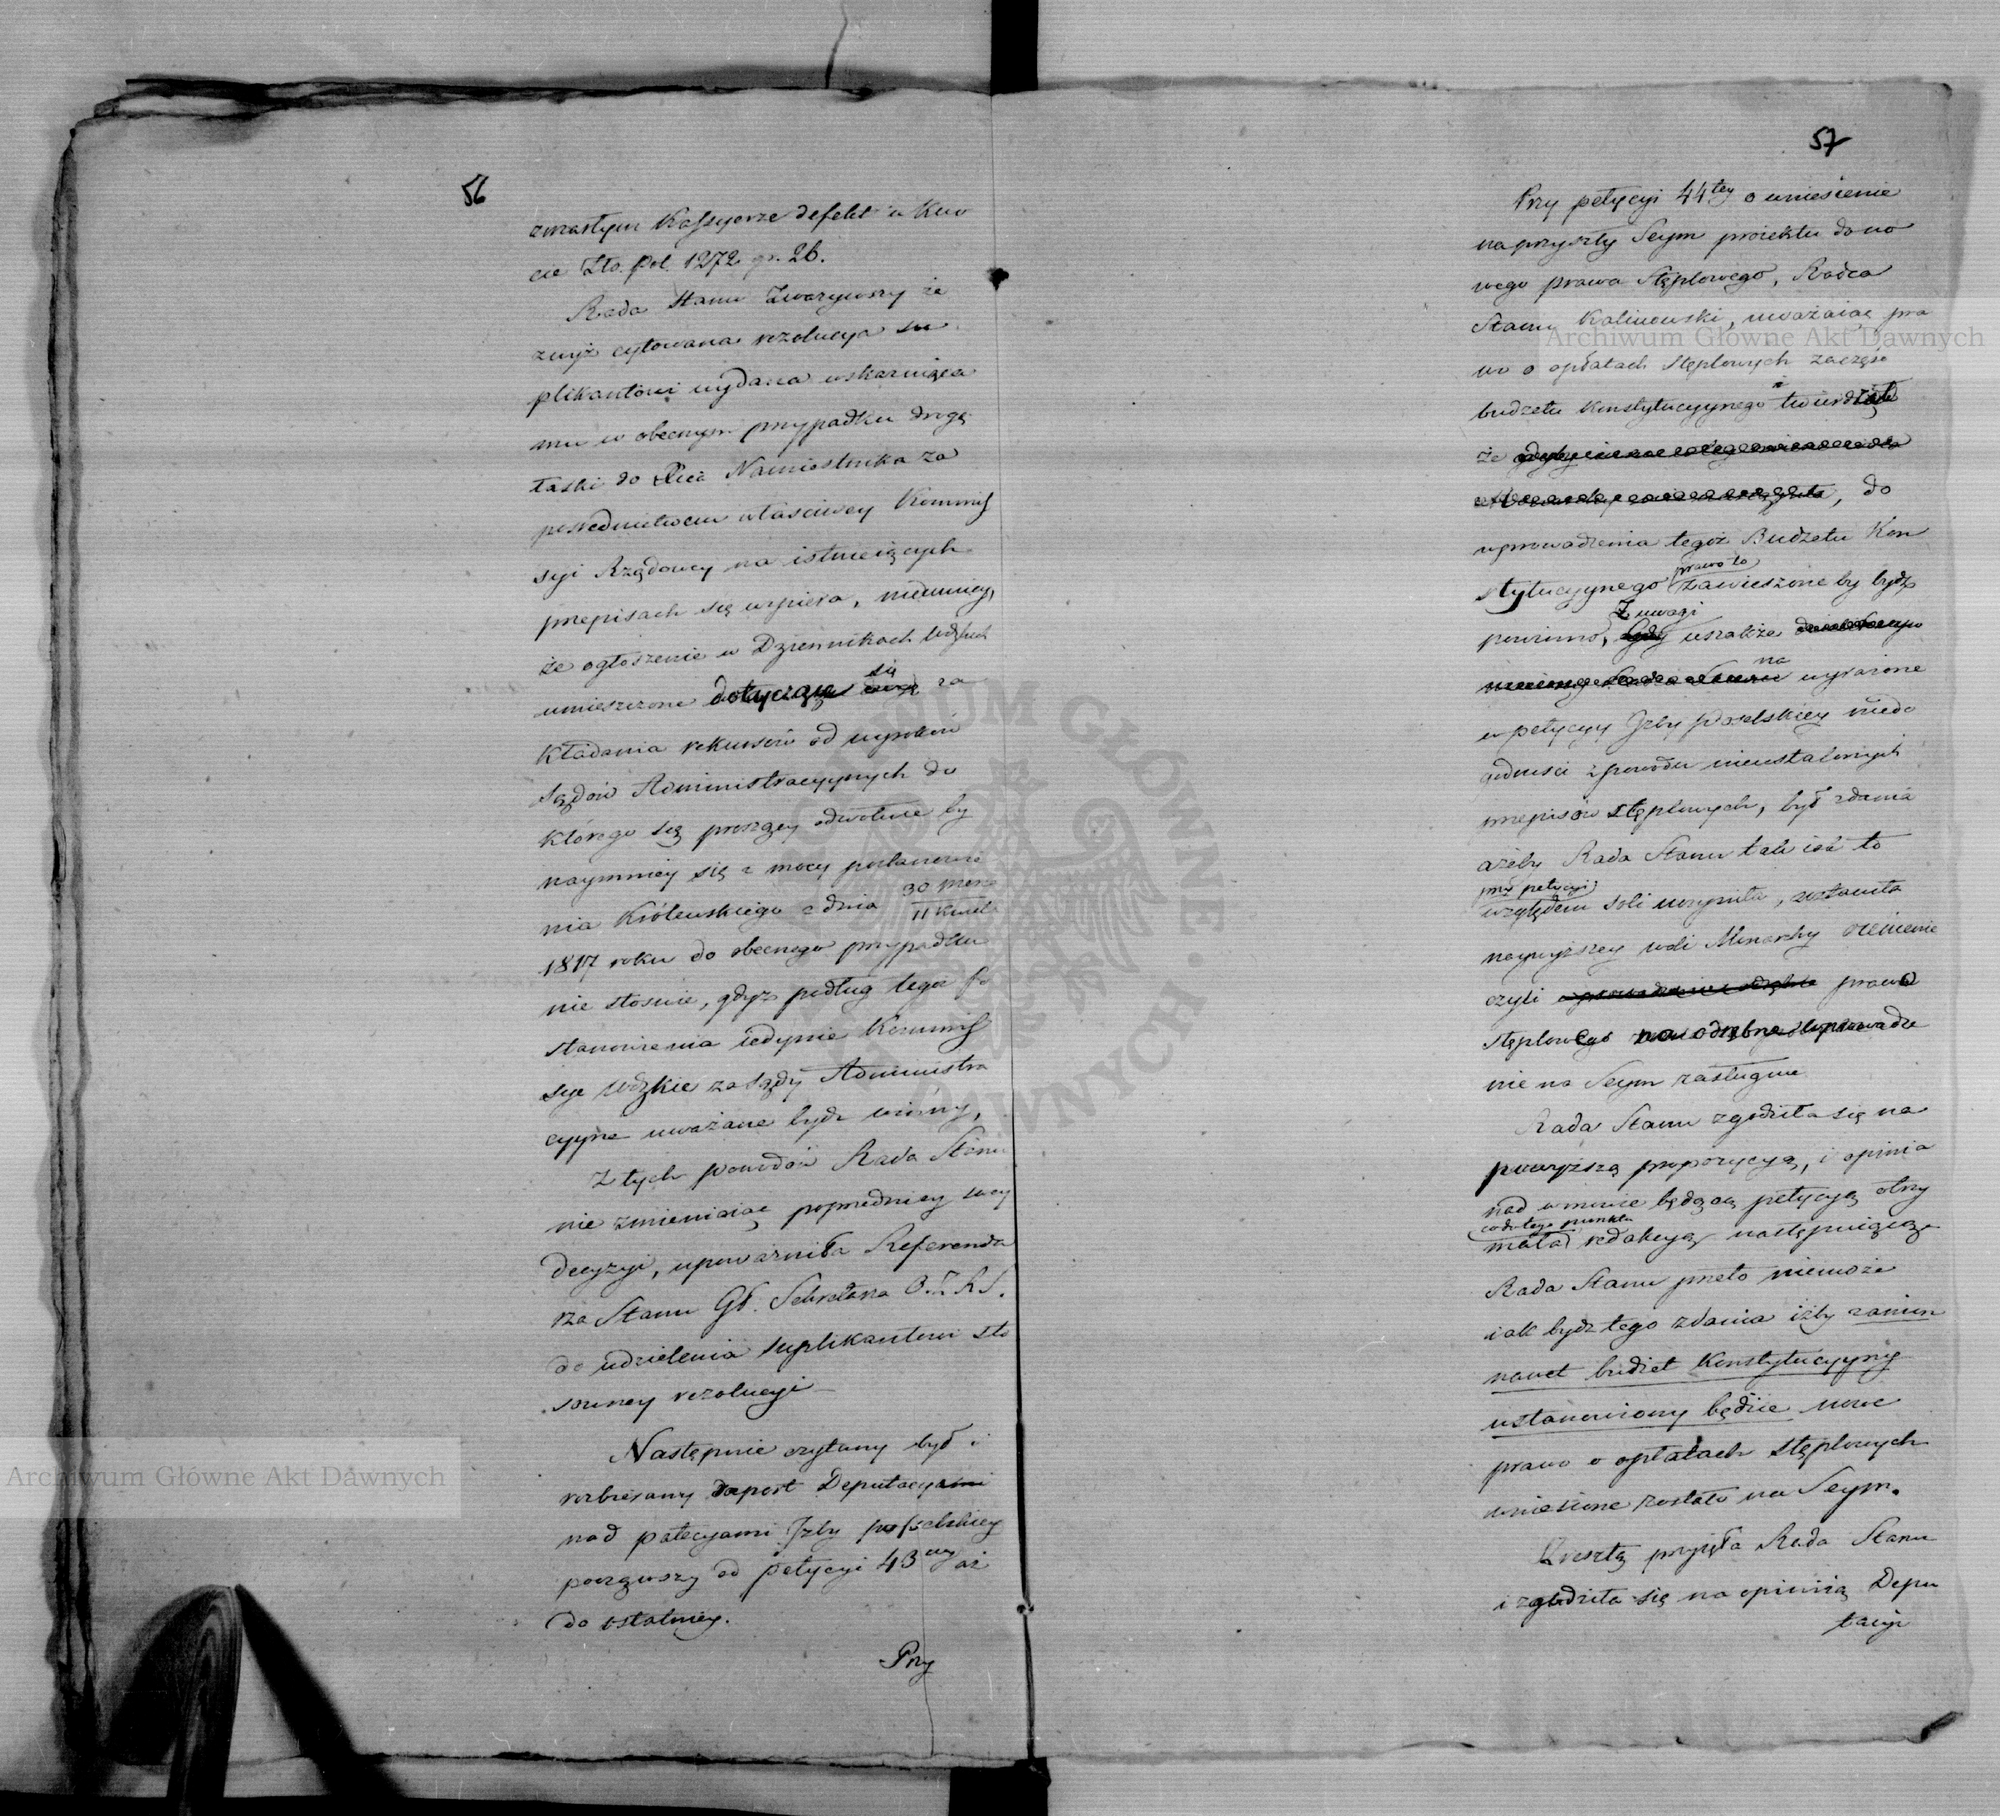 56
zmarłym Kassyerze defekt w kwo
cie Złto. Pol. 1272 gr. 26.
Rada Stanu Zważywszy że
zwyż cytowana rezolucya su
plikantowi wydana wskazuiąca
mu w obecnym przypadku drogę
łaski do Xcia Namiestnika za
pośrednictwem właściwey Kommis
syi Rządowey na istnieiących
przepisach się wspiera, niemniey,
że ogłoszenie w Dziennikach Wdzkich
umieszczone dotyczące się za
kładania rekursów od wyroków
Sądów Administracyynych do
którego się proszący odwołuie by
naymniey się z mocy postanowie
nia Królewskiego z dnia 30 Marca
11 Kwiet.
1817 roku do obecnego przypadku
nie stosuie, gdyż podług tego po
stanowienia iedynie Kommis
sye Wdzkie za Sądy Administra
cyyne uważane bydź winny,
Z tych powodów Rada Stanu
nie zmieniaiąc poprzedniey swey
decyzyi, upoważniła Referenda
rza Stanu Gł. Sekretarza O. Z. R. S.
do udzielenia suplikantowi sto
sowney rezolucyi
Następnie czytany był i
rozbierany raport Deputacyi
nad petycyami Izby poselskiey
począwszy od petycyi 43ciey aż
do ostatniey.
Przy
57
Przy petycyi 44tey o wniesienie
na przyszły Seym proiektu do no
wego prawa Stęplowego, Radca
Stanu Kalinowski, uważaiąc pra
wo o opłatach Stęplowych za część
budżetu Konstytucyynego i twierdząc
że , do
wprowadzenia tegoż Budżetu Kon
prawo to
stytucyynego zawieszone by bydź
Z uwagi
powinno, wszakże
na wyrażone
w petycyi Izby Poselskiey niedo
godności z powodu nieustalonych
przepisów stęplowych, był zdania
ażeby Rada Stanu tak iak to
przy petycyi
względem soli uczyniła, zostawiła
naywyższey woli Monarchy ocenienie
czyli prawo
stęplowego na odrębne wprowadze
nie na Seym zasługuie
Rada Stanu zgodziła się na
powyższą propozycyą, i opinia
nad w mowie będącą petycyą otrzy
co do tego punktu
mała redakcyą następuiącą
Rada Stanu przeto niemoże
iak bydź tego zdania iżby zanim
nawet budżet Konstytucyyny
ustanowiony będzie nowe
prawo o opłatach stęplowych
wniesione zostało na Seym.
Zresztą przyięła Rada Stanu
i zgodziła się na opinią Depu
tacyi
Archiwum Główne Akt Dawnych
Archiwum Główne Akt Dawnych
ARCHIWUM GŁÓWNE AKT DAWNYCH